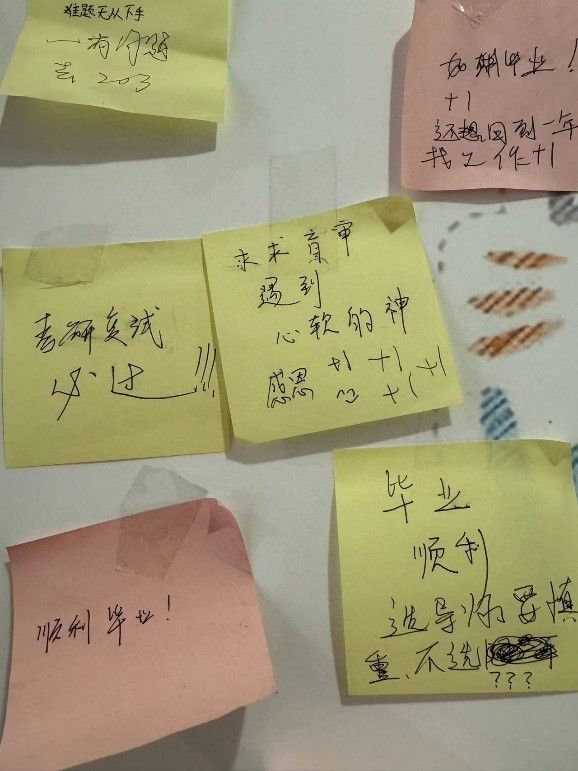 难题无从下手
一有问题
去203
如期毕业！
+1
还想回到一年
找工作+1
求求盲审
遇到
心软的神
感恩 +1 +1 +1
+1
考研复试
必过!!!
毕业
顺利
选导师要慎
重、不选
???
顺利毕业！